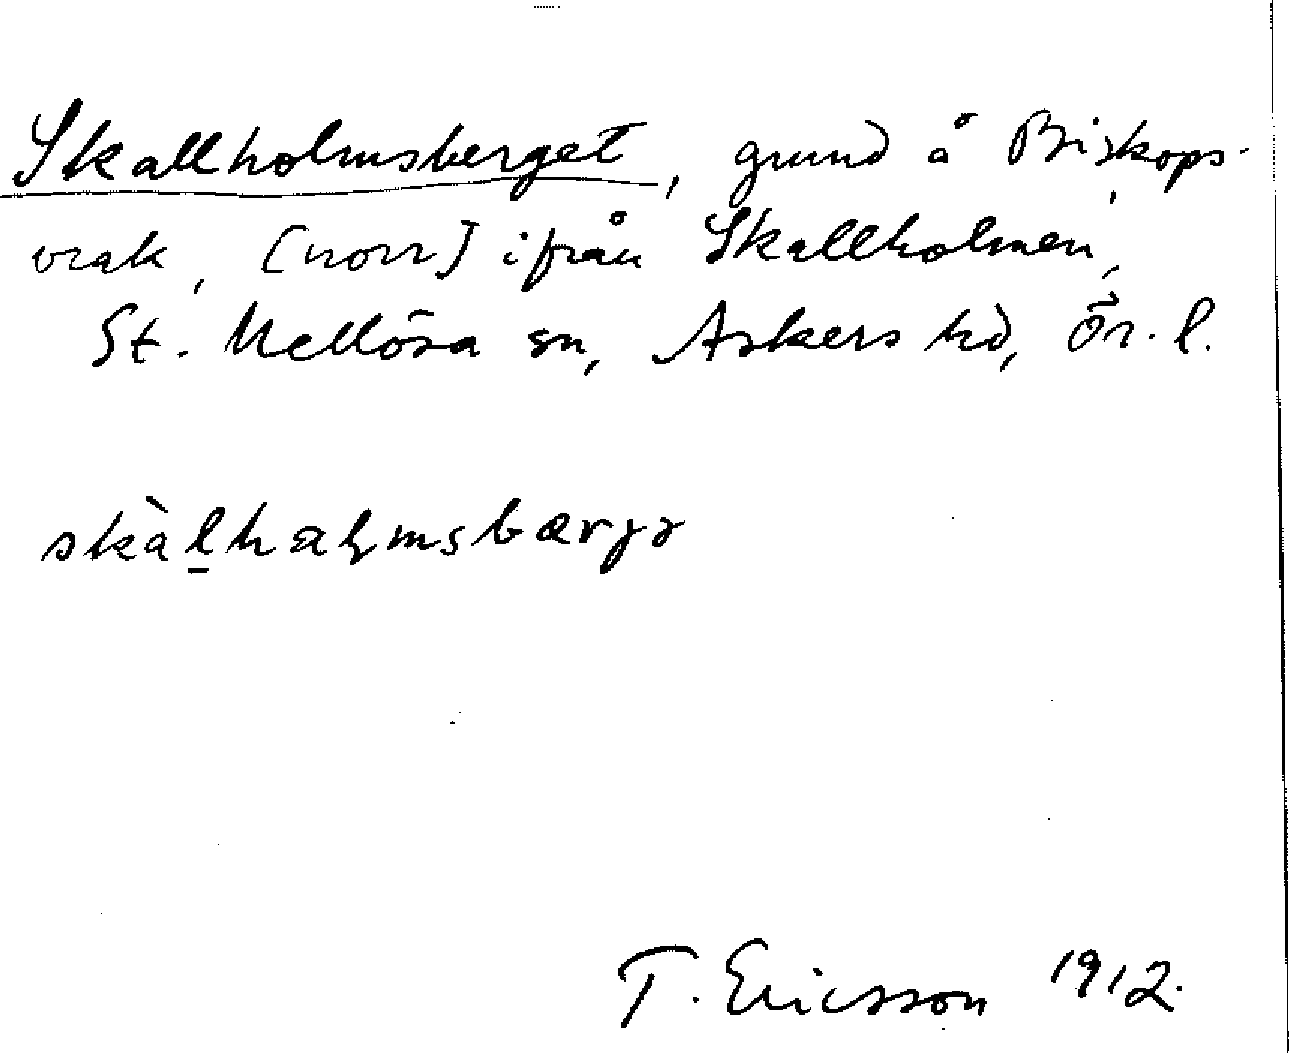 Skallholmsberget, grund å Biskops-
vrak, [norr] ifrån Skallholmen,
St. Mellösa sn, Askers hd, Ör. l.
skàl̲halmsbærjə
T. Ericsson 1912.